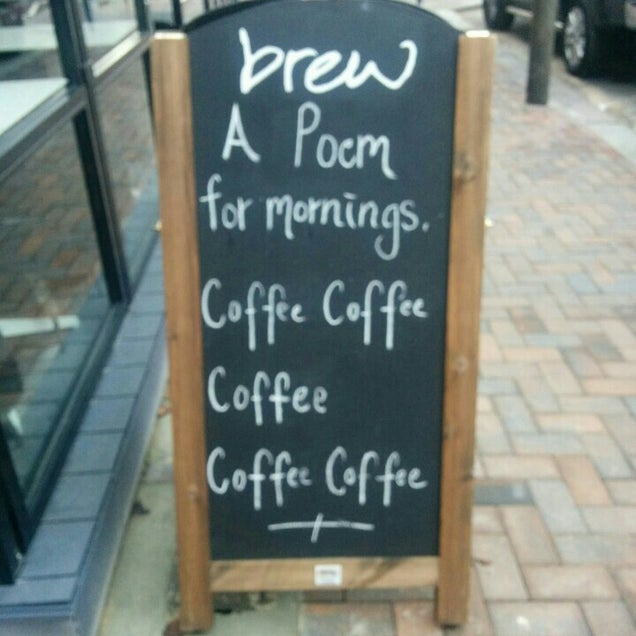 brew
A Poem
for mornings.
Coffee Coffee
Coffee
Coffee Coffee